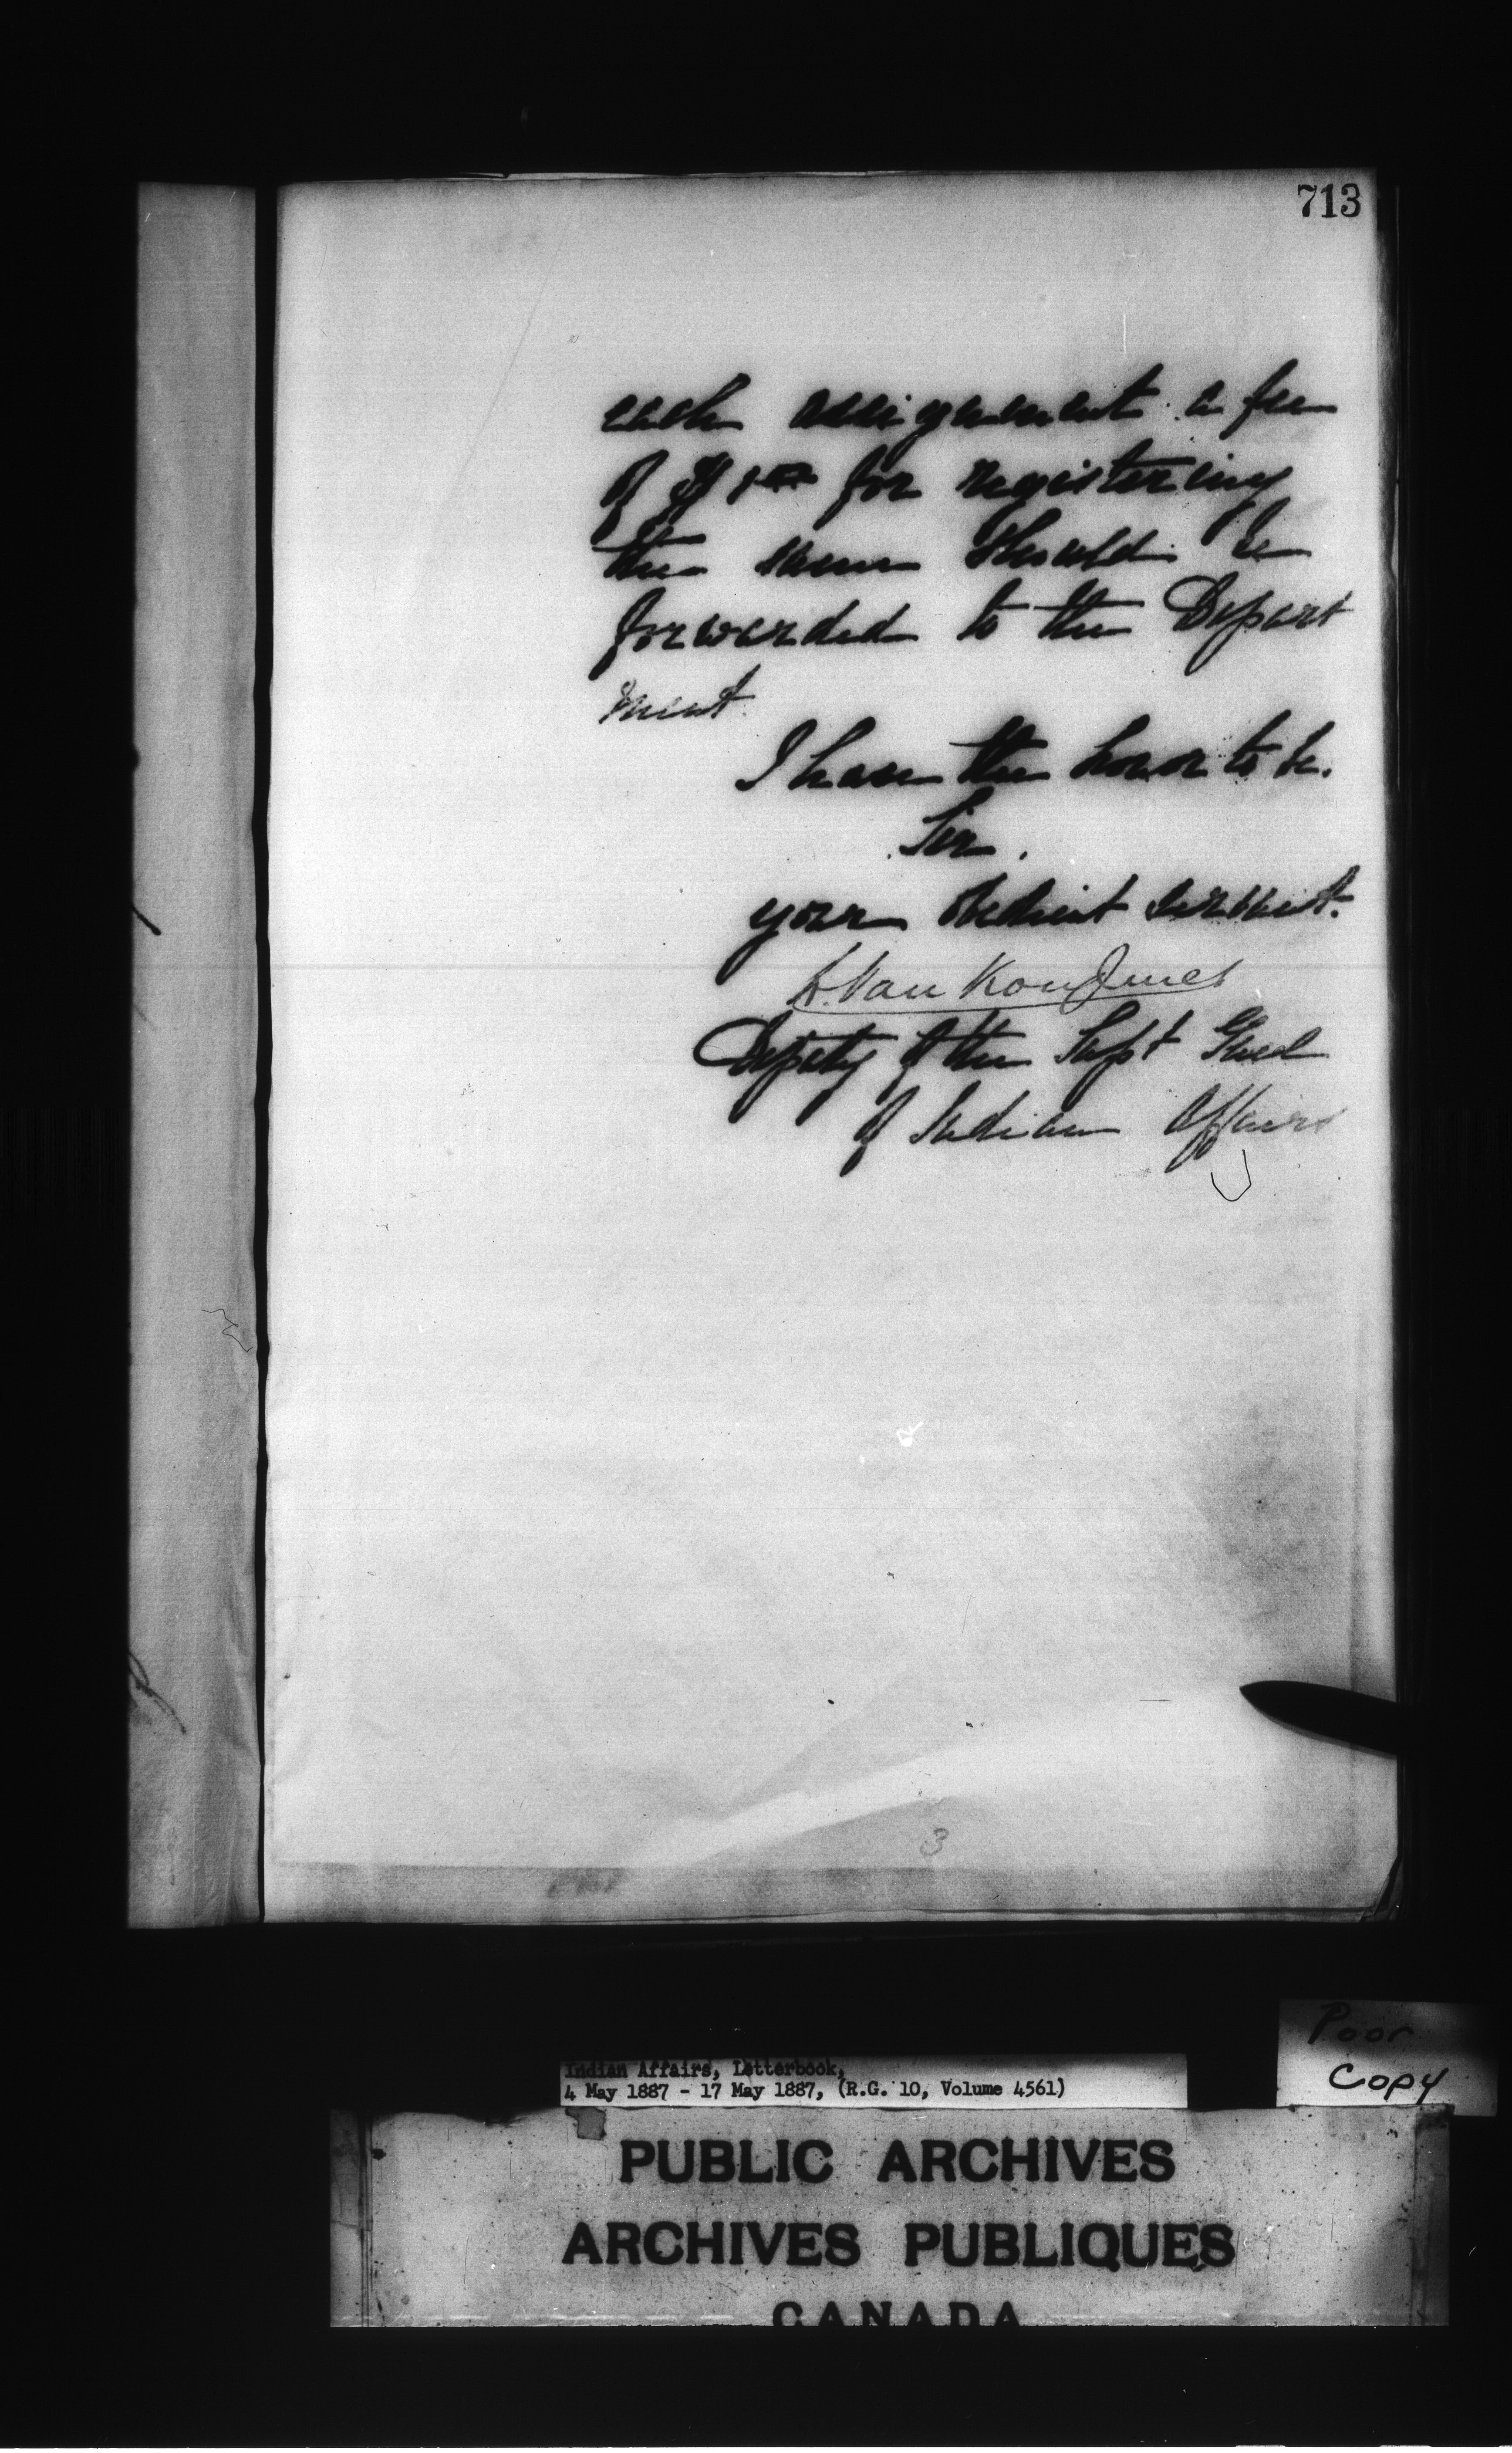 713
each assignment a fee
of $1.00 for registering
the same should be
forwarded to the Depart
ment.
I have the honor to be.
Sir.
your obedient servant.
L. VanKoughnet
Deputy of the Supt Genl
of Indian Affairs
3
Poor
Copy
Indian Affairs, Letterbook,
4 May 1887 - 17 May 1887, (R.G. 10, Volume 4561)
PUBLIC ARCHIVES
ARCHIVES PUBLIQUES
CANADA